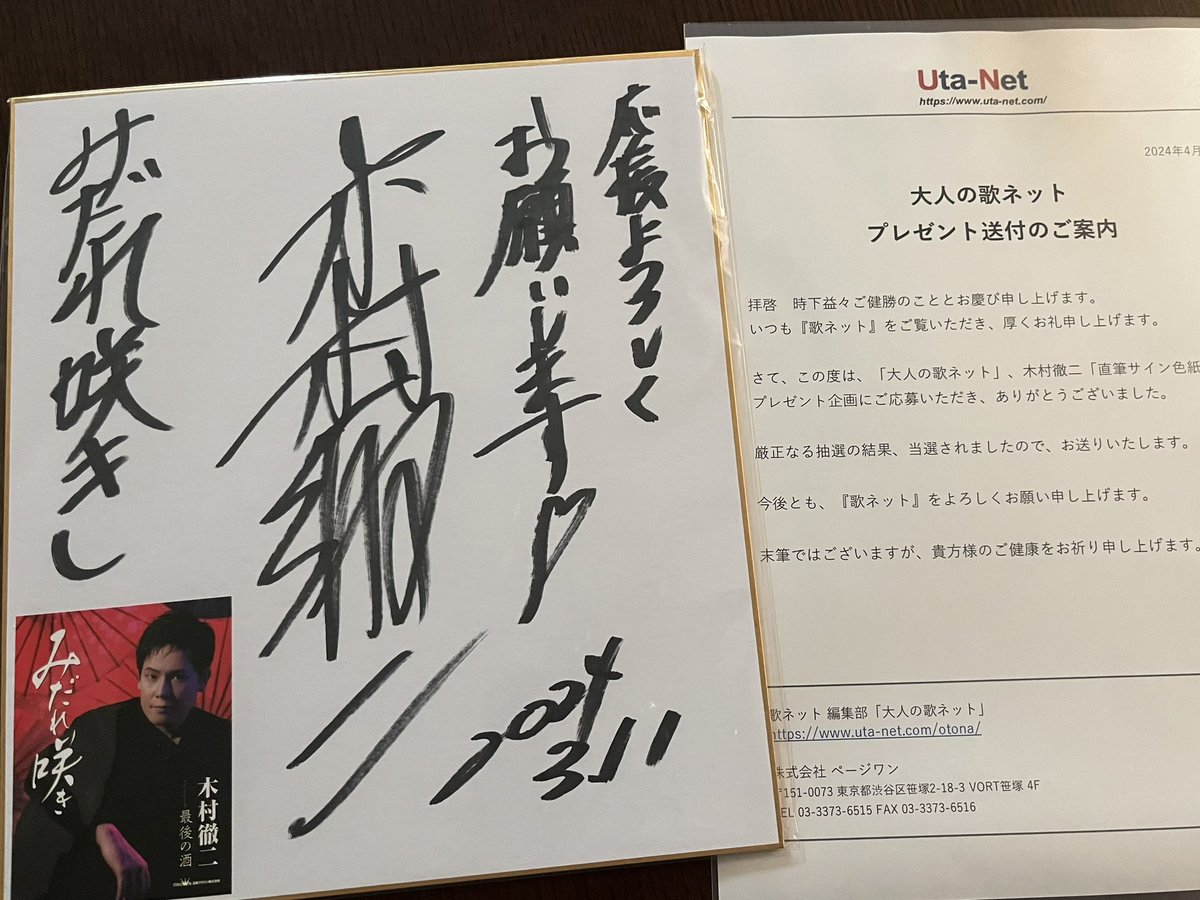 応援よろしく
お願いします
木村徹二
2024
3.11
みだれ咲き
みだれ咲き
木村徹二
最後の酒
Uta-Net
https://www.uta-net.com/
2024年4月
大人の歌ネット
プレゼント送付のご案内
拝啓　時下益々ご健勝のこととお慶び申し上げます。
いつも『歌ネット』をご覧いただき、厚くお礼申し上げます。
さて、この度は、「大人の歌ネット」、木村徹二「直筆サイン色紙
プレゼント企画にご応募いただき、ありがとうございました。
厳正なる抽選の結果、当選されましたので、お送りいたします。
今後とも、『歌ネット』をよろしくお願い申し上げます。
末筆ではございますが、貴方様のご健康をお祈り申し上げます。
歌ネット 編集部「大人の歌ネット」
https://www.uta-net.com/otona/
株式会社 ページワン
〒151-0073 東京都渋谷区笹塚2-18-3 VORT笹塚 4F
TEL 03-3373-6515 FAX 03-3373-6516